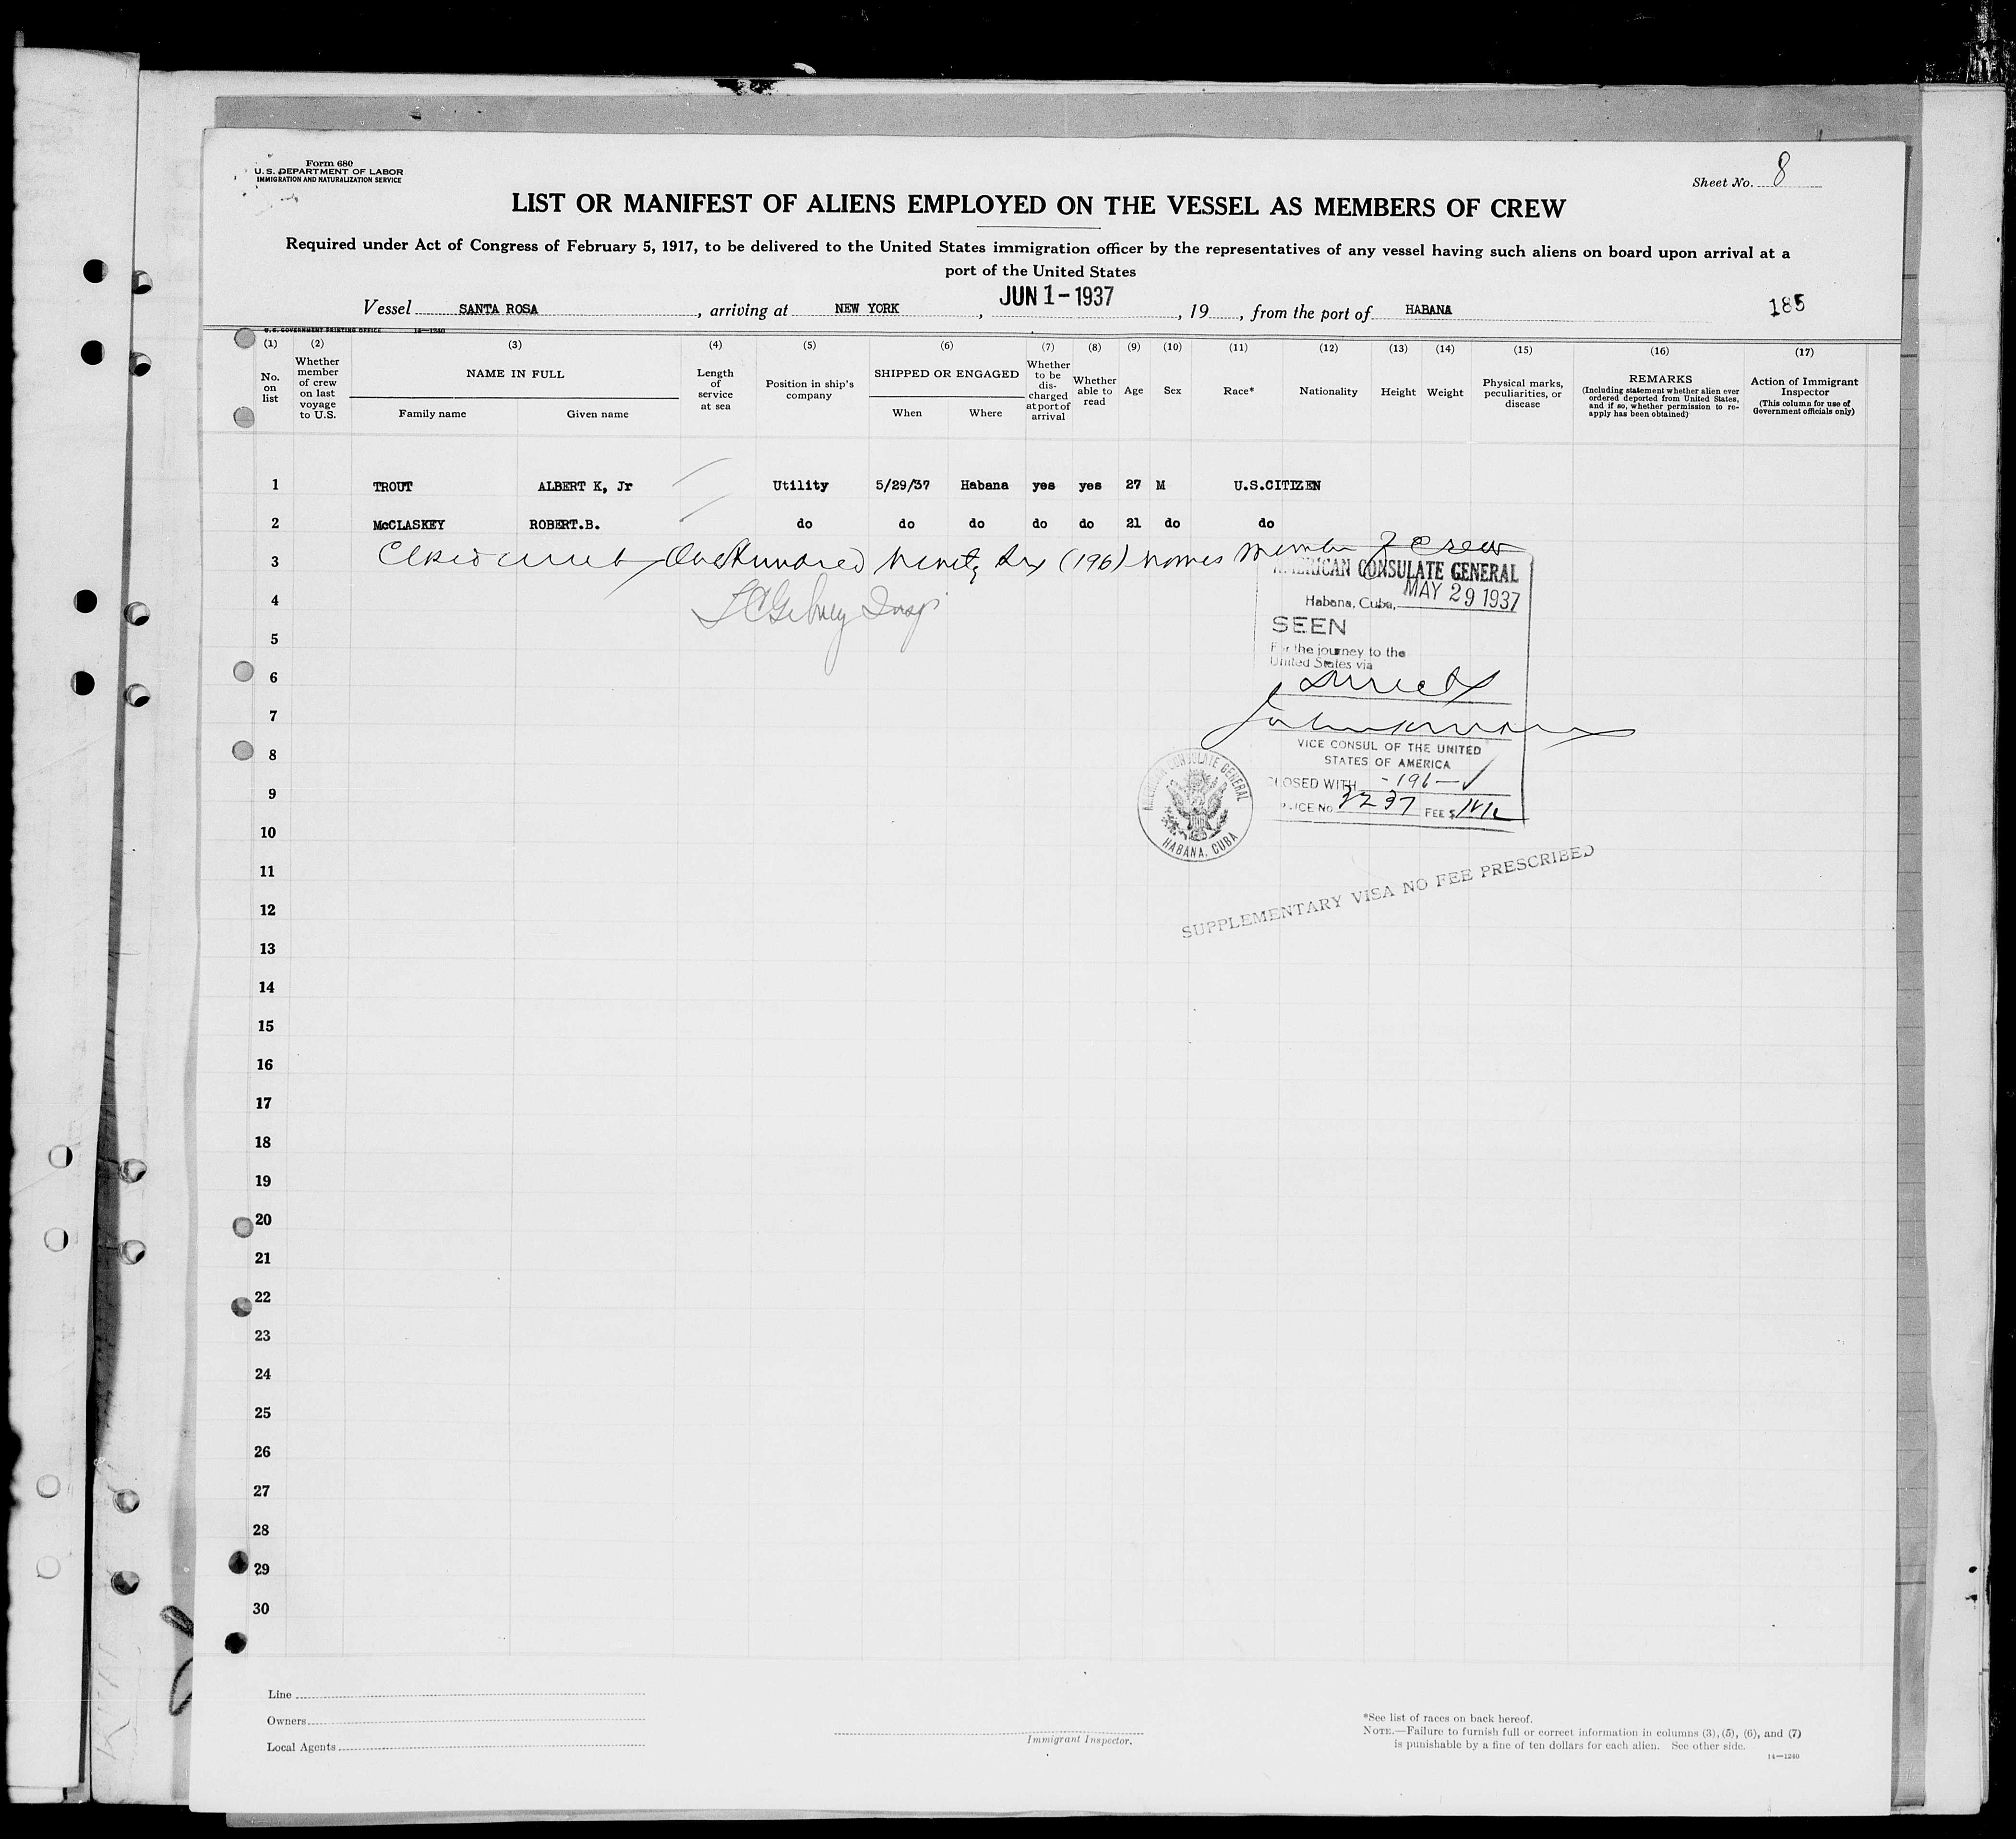 Form 680
U. S. DEPARTMENT OF LABOR
IMMIGRATION AND NATURALIZATION SERVICE
Sheet No. 8
LIST OR MANIFEST OF ALIENS EMPLOYED ON THE VESSEL AS MEMBERS OF CREW
Required under Act of Congress of February 5, 1917, to be delivered to the United States immigration officer by the representatives of any vessel having such aliens on board upon arrival at a
port of the United States
Vessel SANTA ROSA, arriving at NEW YORK, JUN 1-1937, 19, from the port of HABANA
185
U. S. GOVERNMENT PRINTING OFFICE 14-1240
(1) No. on list
(2) Whether member of crew on last voyage to U.S.
(3) NAME IN FULL
Family name Given name
(4) Length of service at sea
(5) Position in ship's company
(6) SHIPPED OR ENGAGED
When Where
(7) Whether to be dis-charged at port of arrival
(8) Whether able to read
(9) Age
(10) Sex
(11) Race*
(12) Nationality
(13) Height
(14) Weight
(15) Physical marks, peculiarities, or disease
(16) REMARKS (Including statement whether alien ever ordered deported from United States, and if so, whether permission to re-apply has been obtained)
(17) Action of Immigrant Inspector (This column for use of Government officials only)
1 TROUT ALBERT K, Jr Utility 5/29/37 Habana yes yes 27 M U.S.CITIZEN
2 McCLASKEY ROBERT.B. do do do do do 21 do do
3 One Hundred Ninety Six (196) names Member of Crew
AMERICAN CONSULATE GENERAL
4
Habana, Cuba, MAY 29 1937
5
SEEN
For the journey to the
United States via
6
direct
7
VICE CONSUL OF THE UNITED
STATES OF AMERICA
8
CLOSED WITH -196-
9
SERVICE No. 3237 FEE $
AMERICAN CONSULATE GENERAL
HABANA, CUBA
10
11
SUPPLEMENTARY VISA NO FEE PRESCRIBED
12
13
14
15
16
17
18
19
20
21
22
23
24
25
26
27
28
29
30
Line
Owners
Local Agents
Immigrant Inspector.
*See list of races on back hereof.
NOTE.—Failure to furnish full or correct information in columns (3), (5), (6), and (7)
is punishable by a fine of ten dollars for each alien. See other side.
14—1240